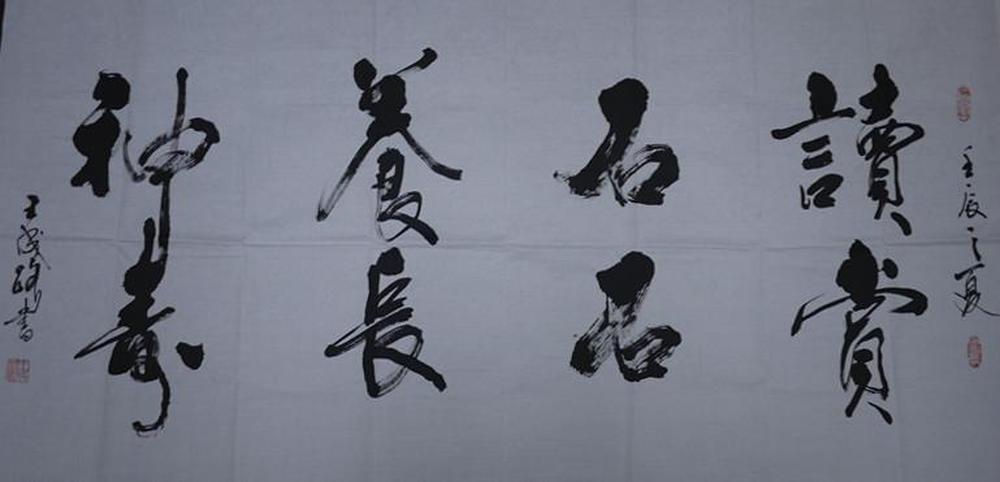 壬辰之夏
讀石養神
賞石長壽
王書